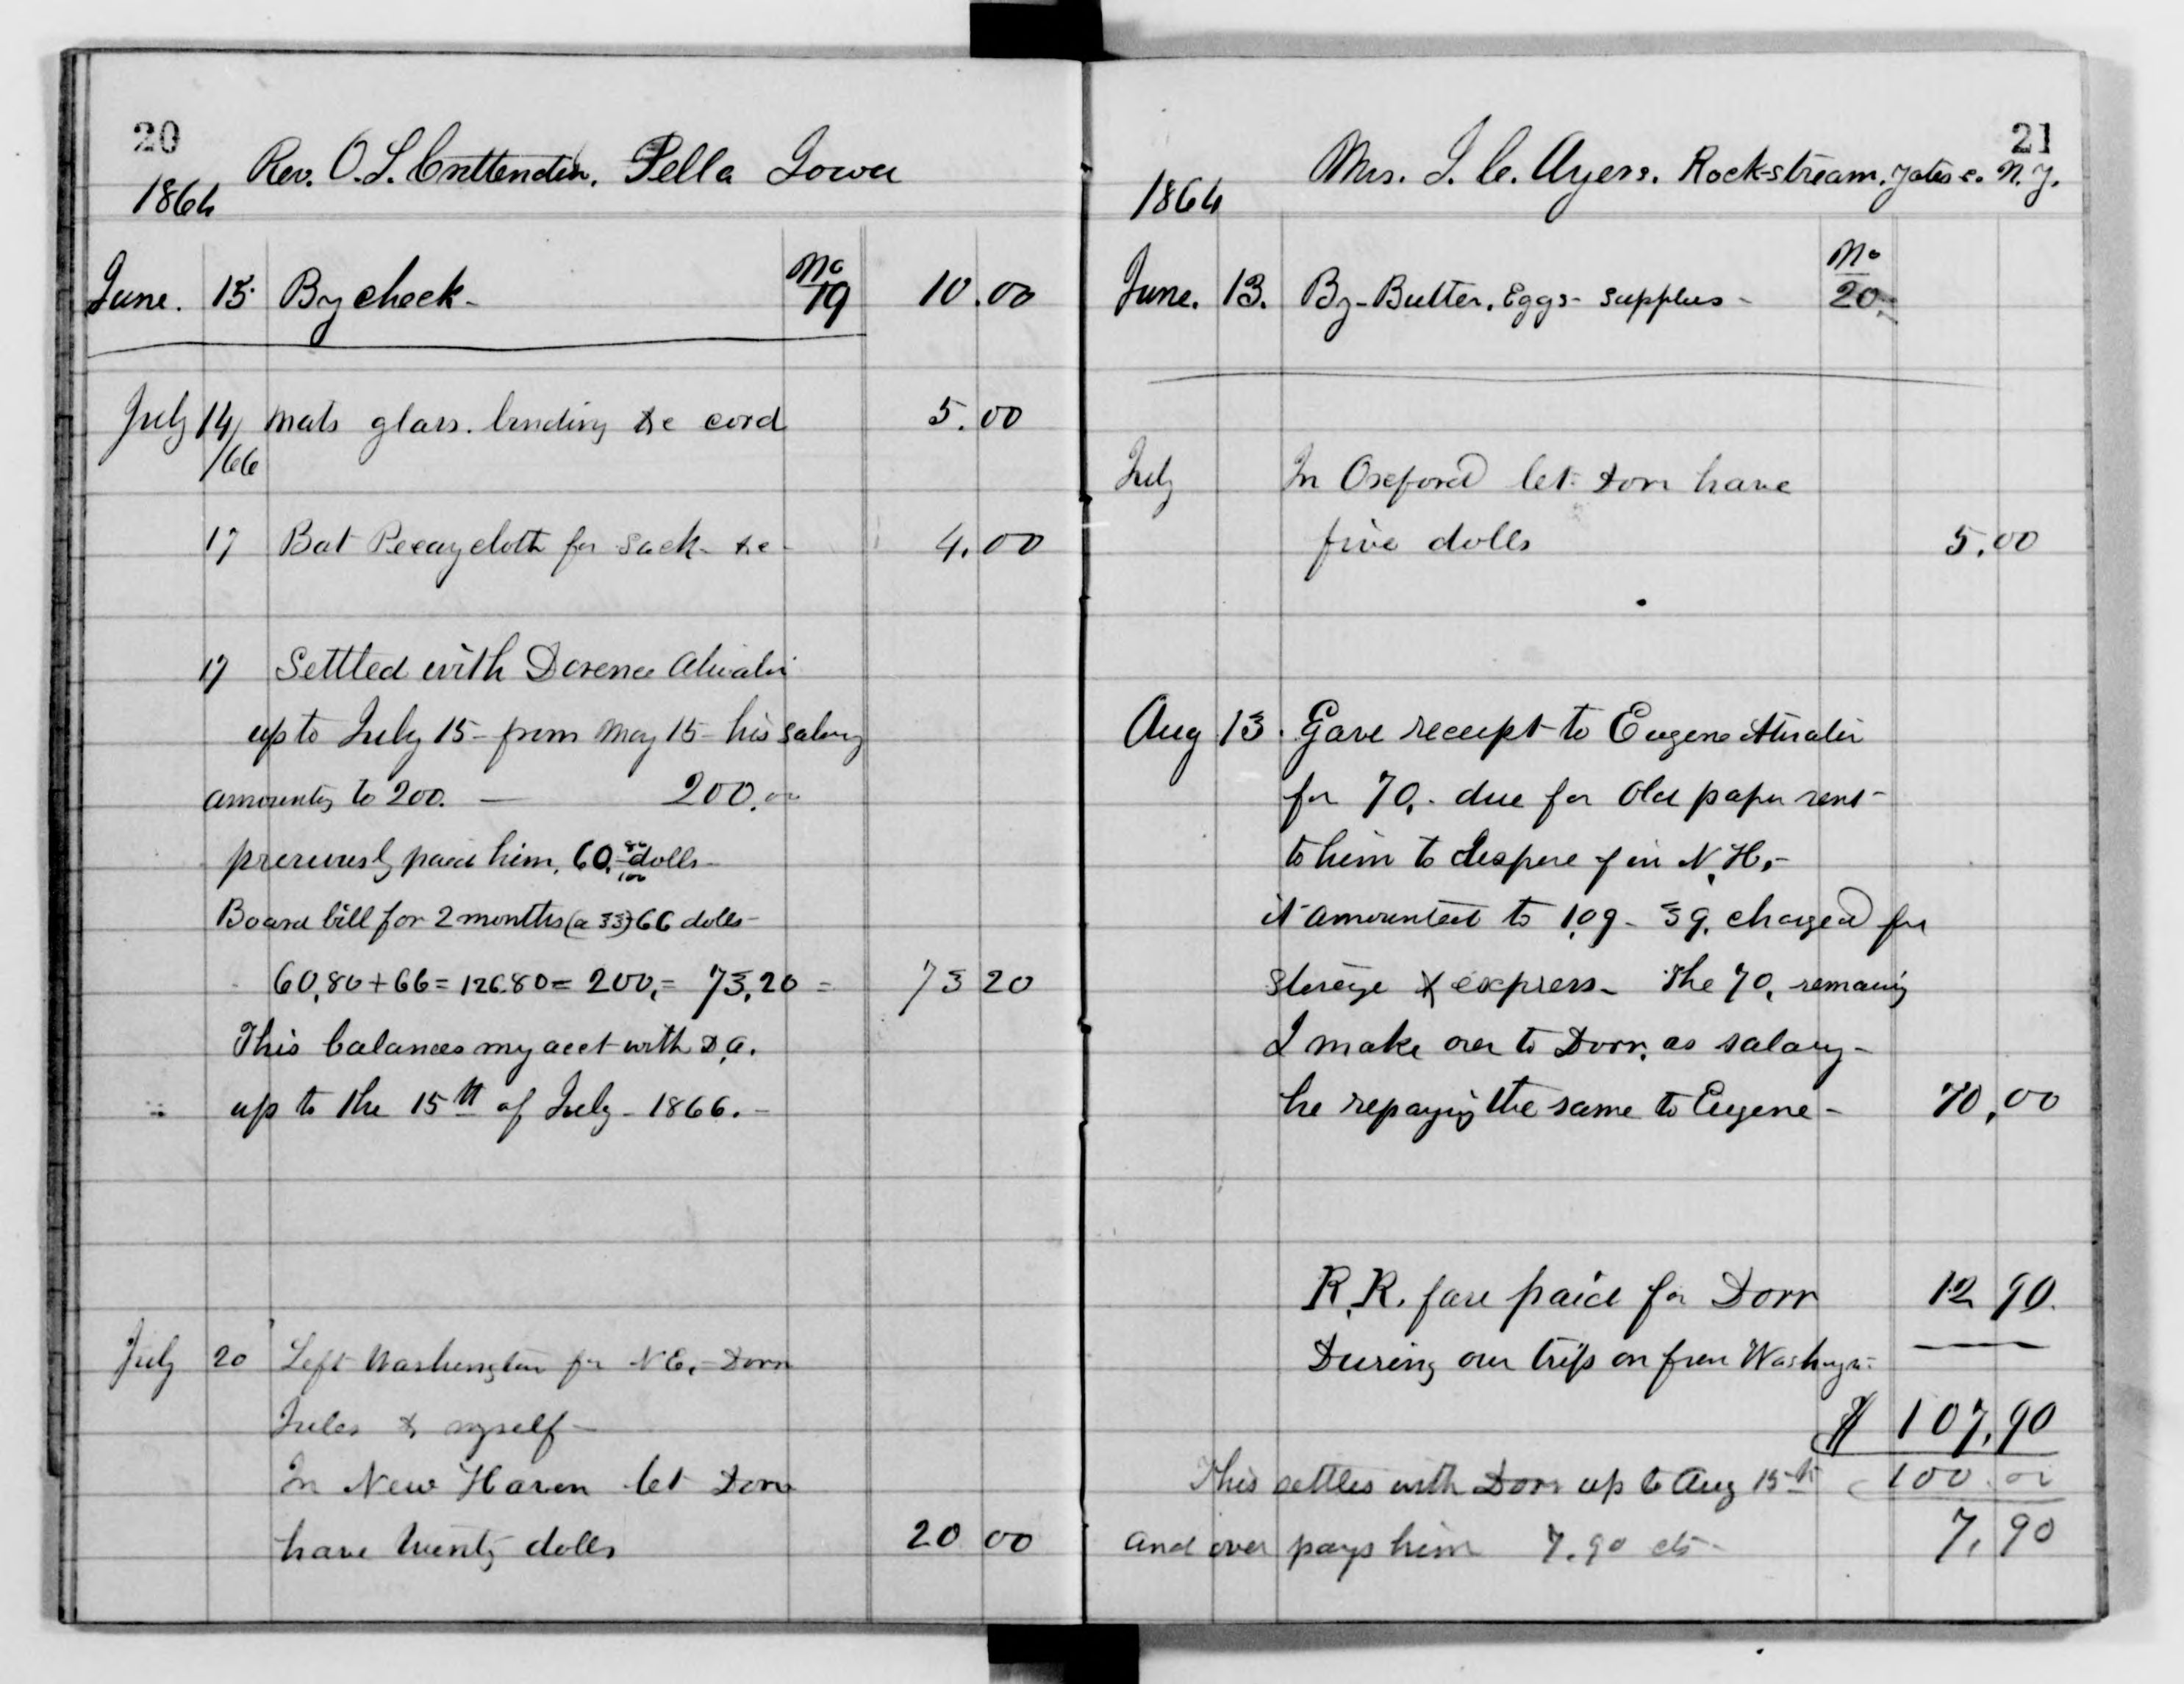 20
Rev. O. L. Crittenden, Pella Iowa
1864
June. 15. By check - No 19 10.00
July 14/66 mats glass. binding &c cord 5.00
17 Bat cloth for sack &c - 4.00
17 Settled with Dorence Atwater
up to July 15 - from May 15 - his salary
amounting to 200. — 200.00
previously paid him, 60. 80/100 dolls -
Board bill for 2 months (a 33) 66 dolls -
60,80 + 66 = 126.80 = 200, = 73,20 = 73 20
This balances my acct with D.A.
up to the 15th of July - 1866. -
July 20 Left Washington for N.E. - Dorr
Jules & myself -
In New Haven let Dorr
have twenty dolls 20 00
21
Mrs. J. C. Ayers. Rock-stream, Yates c. N.Y.
1864
June. 13. By - Butter, Eggs - supplies - No 20.
July In Oxford let Dorr have
five dolls 5.00
Aug 13. Gave receipt to Eugene Atwater
for 70. - due for old paper sent -
to him to dispose of in N.H. -
it amounted to 109 - 39. charged for
storage & express - The 70, remaing
I make over to Dorr. as salary -
he repaying the same to Eugene - 70,00
R.R. fare paid for Dorr 12 90.
During our trip on from Washngn -
$ 107,90
This settles with Dorr up to Aug 15th 100.00
and over pays him 7.90 cts - 7,90